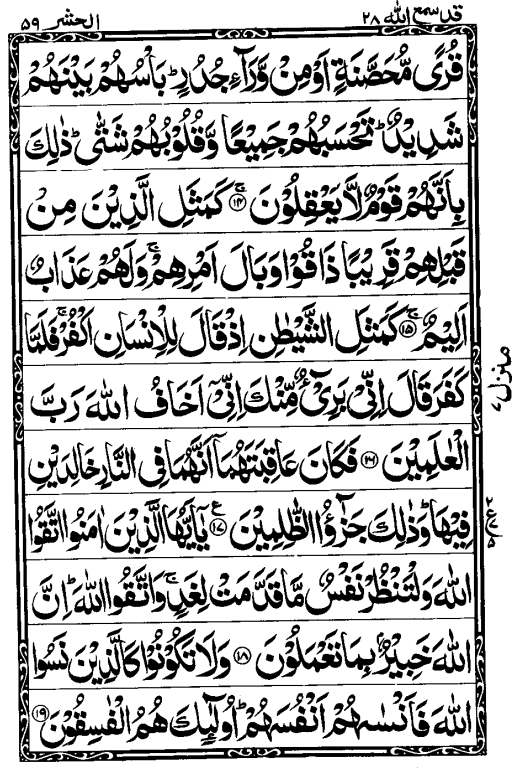 قد سمع الله ٢٨
الحشر ٥٩
قُرًى مُّحَصَّنَةٍ اَوْ مِنْ وَّرَآءِ جُدُرٍ ؕ بَاْسُهُمْ بَيْنَهُمْ
شَدِيْدٌ ؕ تَحْسَبُهُمْ جَمِيْعًا وَّقُلُوْبُهُمْ شَتّٰى ؕ ذٰلِكَ
بِاَنَّهُمْ قَوْمٌ لَّا يَعْقِلُوْنَ ۚ‏﴿۱۴﴾ كَمَثَلِ الَّذِيْنَ مِنْ
قَبْلِهِمْ قَرِيْبًا ذَاقُوْا وَبَالَ اَمْرِهِمْ ۚ وَلَهُمْ عَذَابٌ
اَلِيْمٌ ۚ﴿۱۵﴾ كَمَثَلِ الشَّيْطٰنِ اِذْ قَالَ لِلْاِنْسَانِ اكْفُرْ ۚ فَلَمَّا
كَفَرَ قَالَ اِنِّىْ بَرِىْٓءٌ مِّنْكَ اِنِّىْٓ اَخَافُ اللّٰهَ رَبَّ
الْعٰلَمِيْنَ ﴿۱۶﴾ فَكَانَ عَاقِبَتَهُمَاۤ اَنَّهُمَا فِى النَّارِ خَالِدَيْنِ
فِيْهَا ؕ وَذٰلِكَ جَزٰٓؤُا الظّٰلِمِيْنَ ﴿۱۷﴾ ع يٰۤاَيُّهَا الَّذِيْنَ اٰمَنُوا اتَّقُوا
اللّٰهَ وَلْتَنْظُرْ نَفْسٌ مَّا قَدَّمَتْ لِغَدٍ ۚ وَاتَّقُوا اللّٰهَ ؕ اِنَّ
اللّٰهَ خَبِيْرٌۢ بِمَا تَعْمَلُوْنَ ﴿۱۸﴾ وَلَا تَكُوْنُوْا كَالَّذِيْنَ نَسُوا
اللّٰهَ فَاَنْسٰىهُمْ اَنْفُسَهُمْ ؕ اُولٰٓئِكَ هُمُ الْفٰسِقُوْنَ ﴿۱۹﴾
منزل ٧